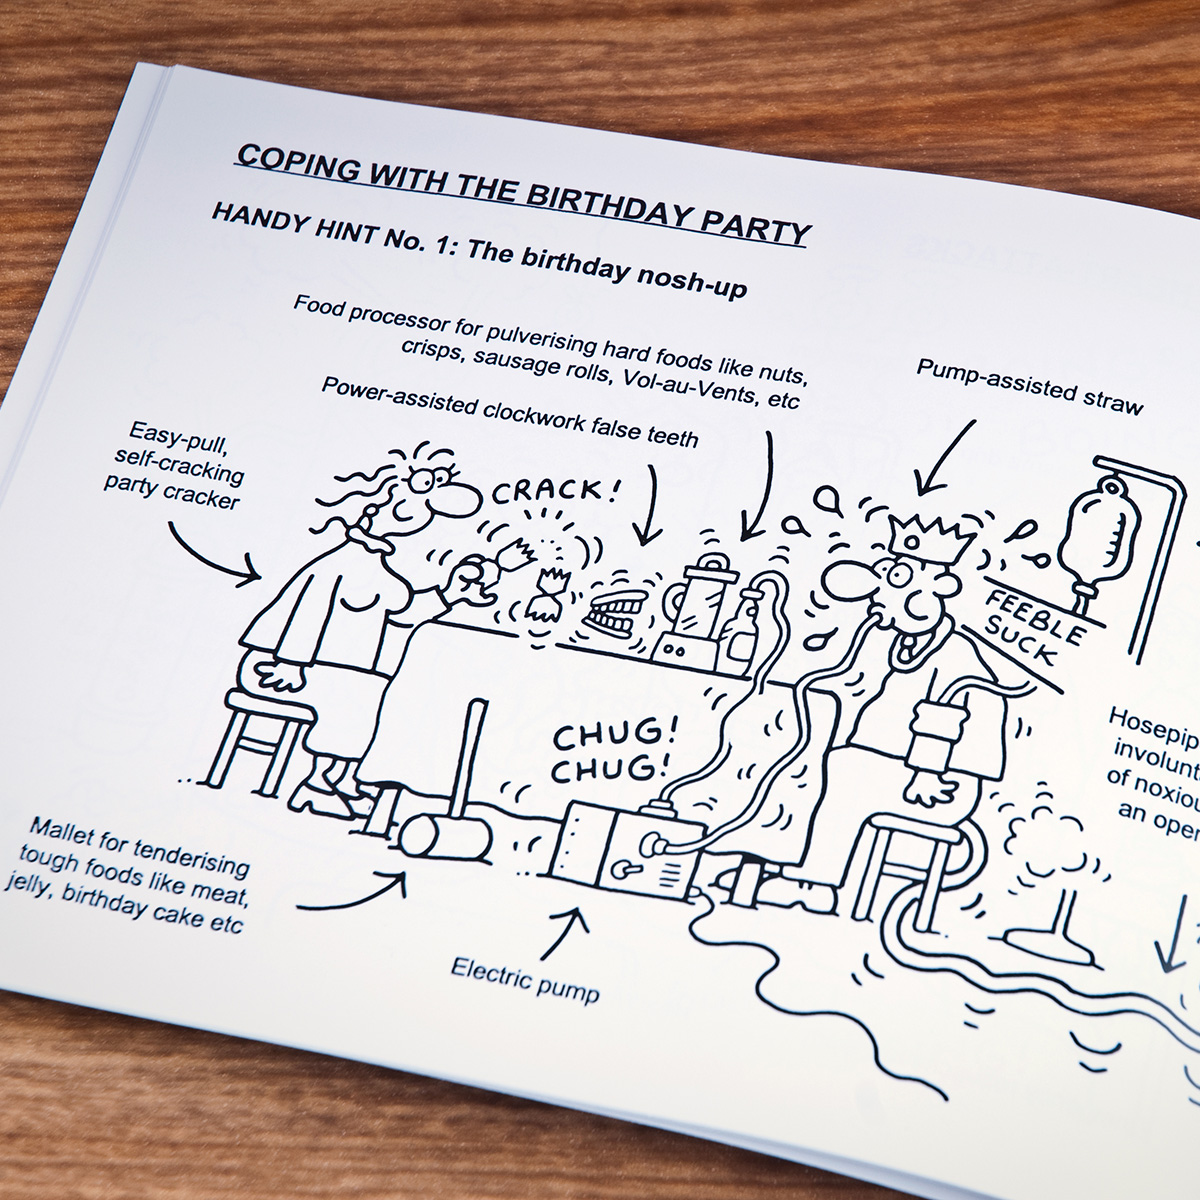 COPING WITH THE BIRTHDAY PARTY
HANDY HINT No. 1: The birthday nosh-up
Food processor for pulverising hard foods like nuts,
crisps, sausage rolls, Vol-au-Vents, etc
Power-assisted clockwork false teeth
Pump-assisted straw
Easy-pull,
self-cracking
party cracker
CRACK!
FEEBLE
SUCK
CHUG!
CHUG!
of
an
Mallet for tenderising
tough foods like meat,
jelly, birthday cake etc
Electric pump